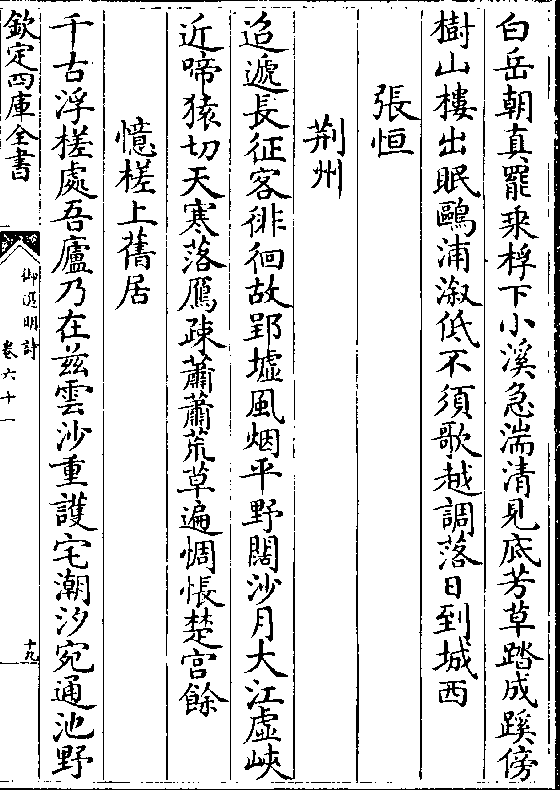 白岳朝真罷乗桴下小溪急湍清見底芳草踏成蹊傍
樹山樓出眠鷗浦溆低不須歌越調落日到城西
張恒
荆州
迢遞長征客徘徊故郢墟風烟平野闊沙月大江虚峽
近啼猿切天寒落鴈疎蕭蕭荒草遍惆悵楚宫餘
憶槎上舊居
千古浮槎處吾廬乃在兹雲沙重護宅潮汐宛通池野
欽定四庫全書
御選明詩
卷六十一
十九